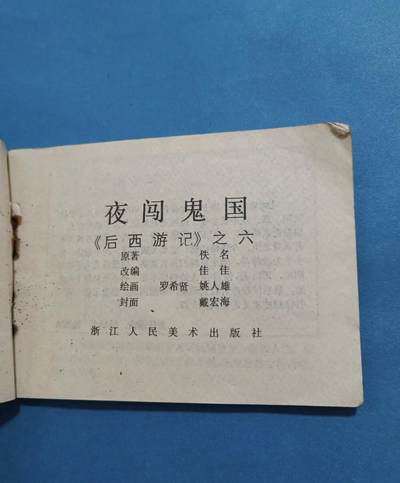 夜闯鬼国
《后西游记》之六
原著 佚名
改编 佳佳
绘画 罗希贤 姚人雄
封面 戴宏海
浙江人民美术出版社